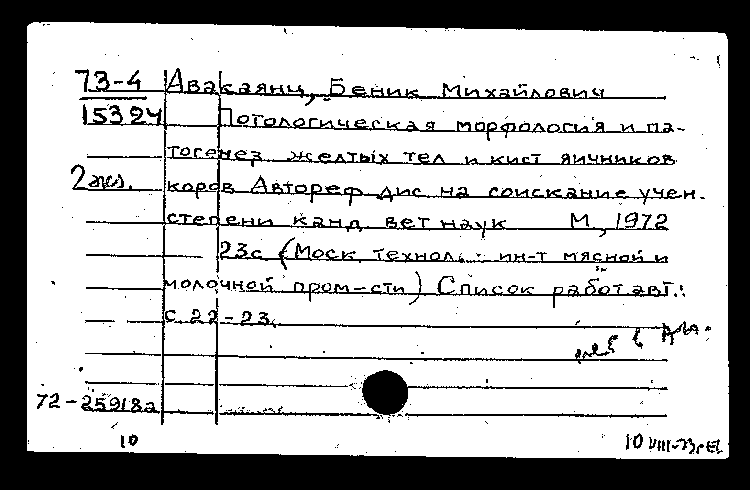 73-4 Авакаянц, Беник Михайлович
15324 Потологическая морфология и па-
тогенез желтых тел и кист яичников
2 экз. коров Автореф дис на соискание учен.
степени канд. вет наук М, 1972
23с (Моск. технол. ин-т мясной и
молочной пром-сти) Список работ авт.:
с 22-23.
72-25918а
10 10 VIII-73г